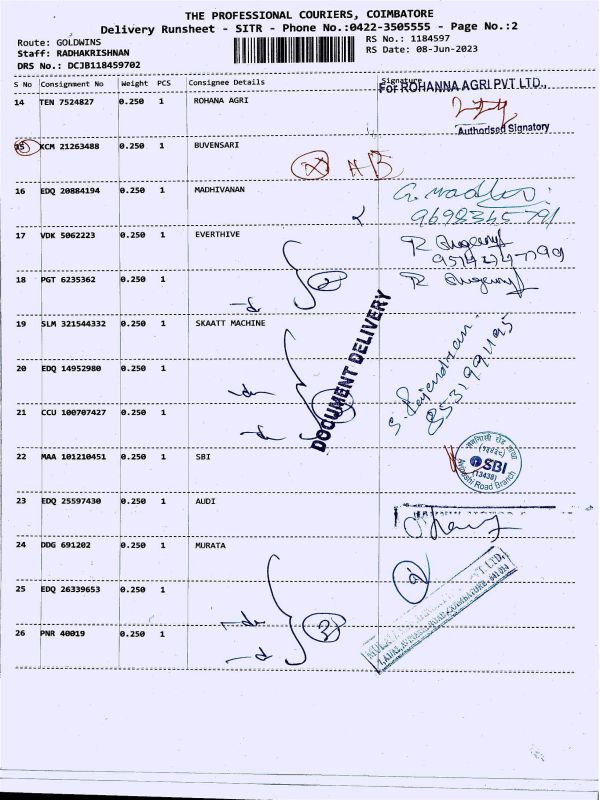 THE PROFESSIONAL COURIERS, COIMBATORE
Delivery Runsheet - SITR - Phone No.:0422-3505555 - Page No.:2
Route: GOLDWINS
RS No.: 1184597
Staff: RADHAKRISHNAN
RS Date: 08-Jun-2023
DRS No.: DCJB118459702
S No Consignment No Weight PCS Consignee Details Signature
For ROHANNA AGRI PVT LTD.,
14 TEN 7524827 0.250 1 ROHANA AGRI
Authorised Signatory
15 KCM 21263488 0.250 1 BUVENSARI
16 EDQ 20884194 0.250 1 MADHIVANAN
9698345791
17 VDK 5062223 0.250 1 EVERTHIVE
18 PGT 6235362 0.250 1
2
DOCUMENT DELIVERY
19 SLM 321544332 0.250 1 SKAATT MACHINE
S. Rajendran.
20 EDQ 14952980 0.250 1
21 CCU 100707427 0.250 1
22 MAA 101210451 0.250 1 SBI
SBI
(13438)
Road Branch
23 EDQ 25597430 0.250 1 AUDI
24 DDG 691202 0.250 1 MURATA
25 EDQ 26339653 0.250 1
26 PNR 40019 0.250 1